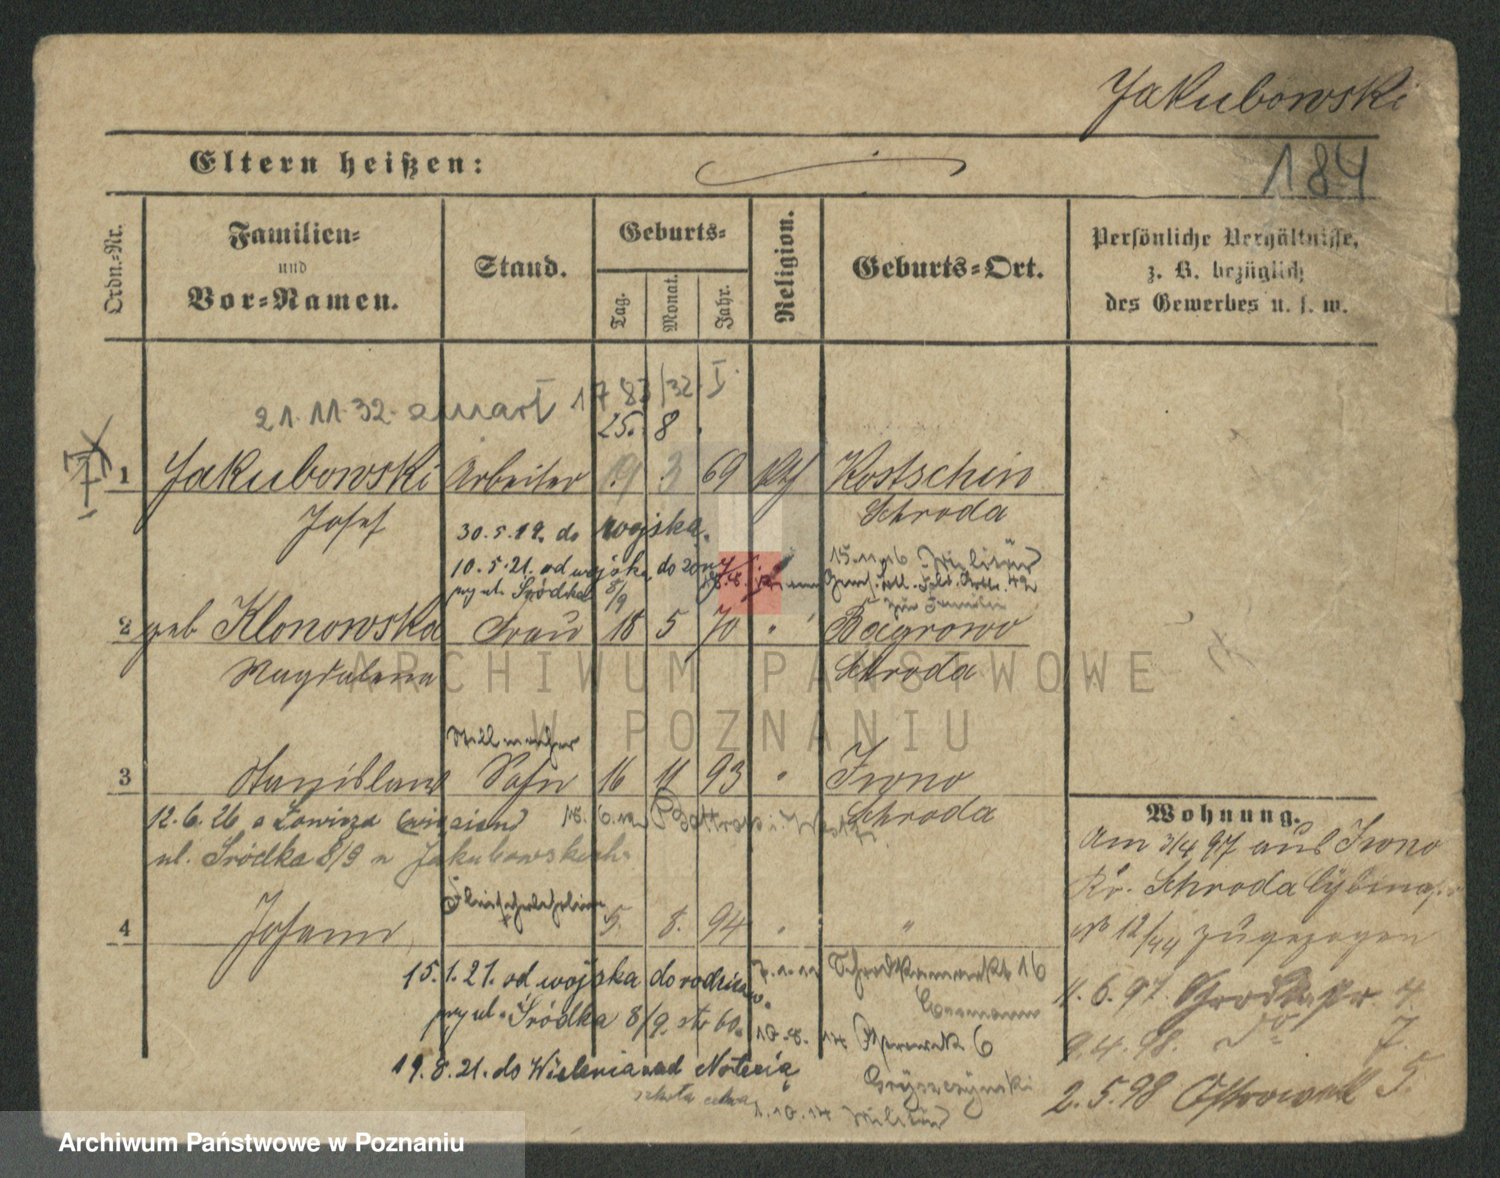 Jakubowski
Eltern heißen:
184
Ordn.-Nr.
Familien-
und
Vor-Namen.
Stand.
Geburts-
Tag.
Monat.
Jahr.
Religion.
Geburts-Ort.
Persönliche Verhältnisse,
z. B. bezüglich
des Gewerbes u. s. w.
21.11.32. umarł 1783/32. I.
25. 8.
1 Jakubowski Arbeiter 19 3 69 kth Kostschin
Josef Schroda
30.5.19. do wojska.
10.5.21. od wojska do żony
przy ul. Śródka 8/9
15.11.16 Militär
zur Familie
2 geb Klonowska Frau 18 5 70 " Bagrowo
Magdalena Schroda
ARCHIWUM PAŃSTWOWE
W POZNANIU
Stellmacher
3 Stanislaus Sohn 16 11 93 " Iwno
Schroda
12.6.26 z Łowicza
ul. Śródka 8/9 u Jakubowskich.
4 Johann 5. 8. 94 " "
15.1.21. od wojska do rodziców
przy ul. Śródka 8/9.
19.8.21. do Wielenia nad Notecią
10.8.14 Ostrowek 6
1.10.14 Militär
Wohnung.
Am 3/4 97 aus Iwno
Kr. Schroda Cybinastr
No 12/44 zugezogen
11.6.97. 4.
2.4.98. do 7.
2.5.98 Ostrowek 5.
Archiwum Państwowe w Poznaniu